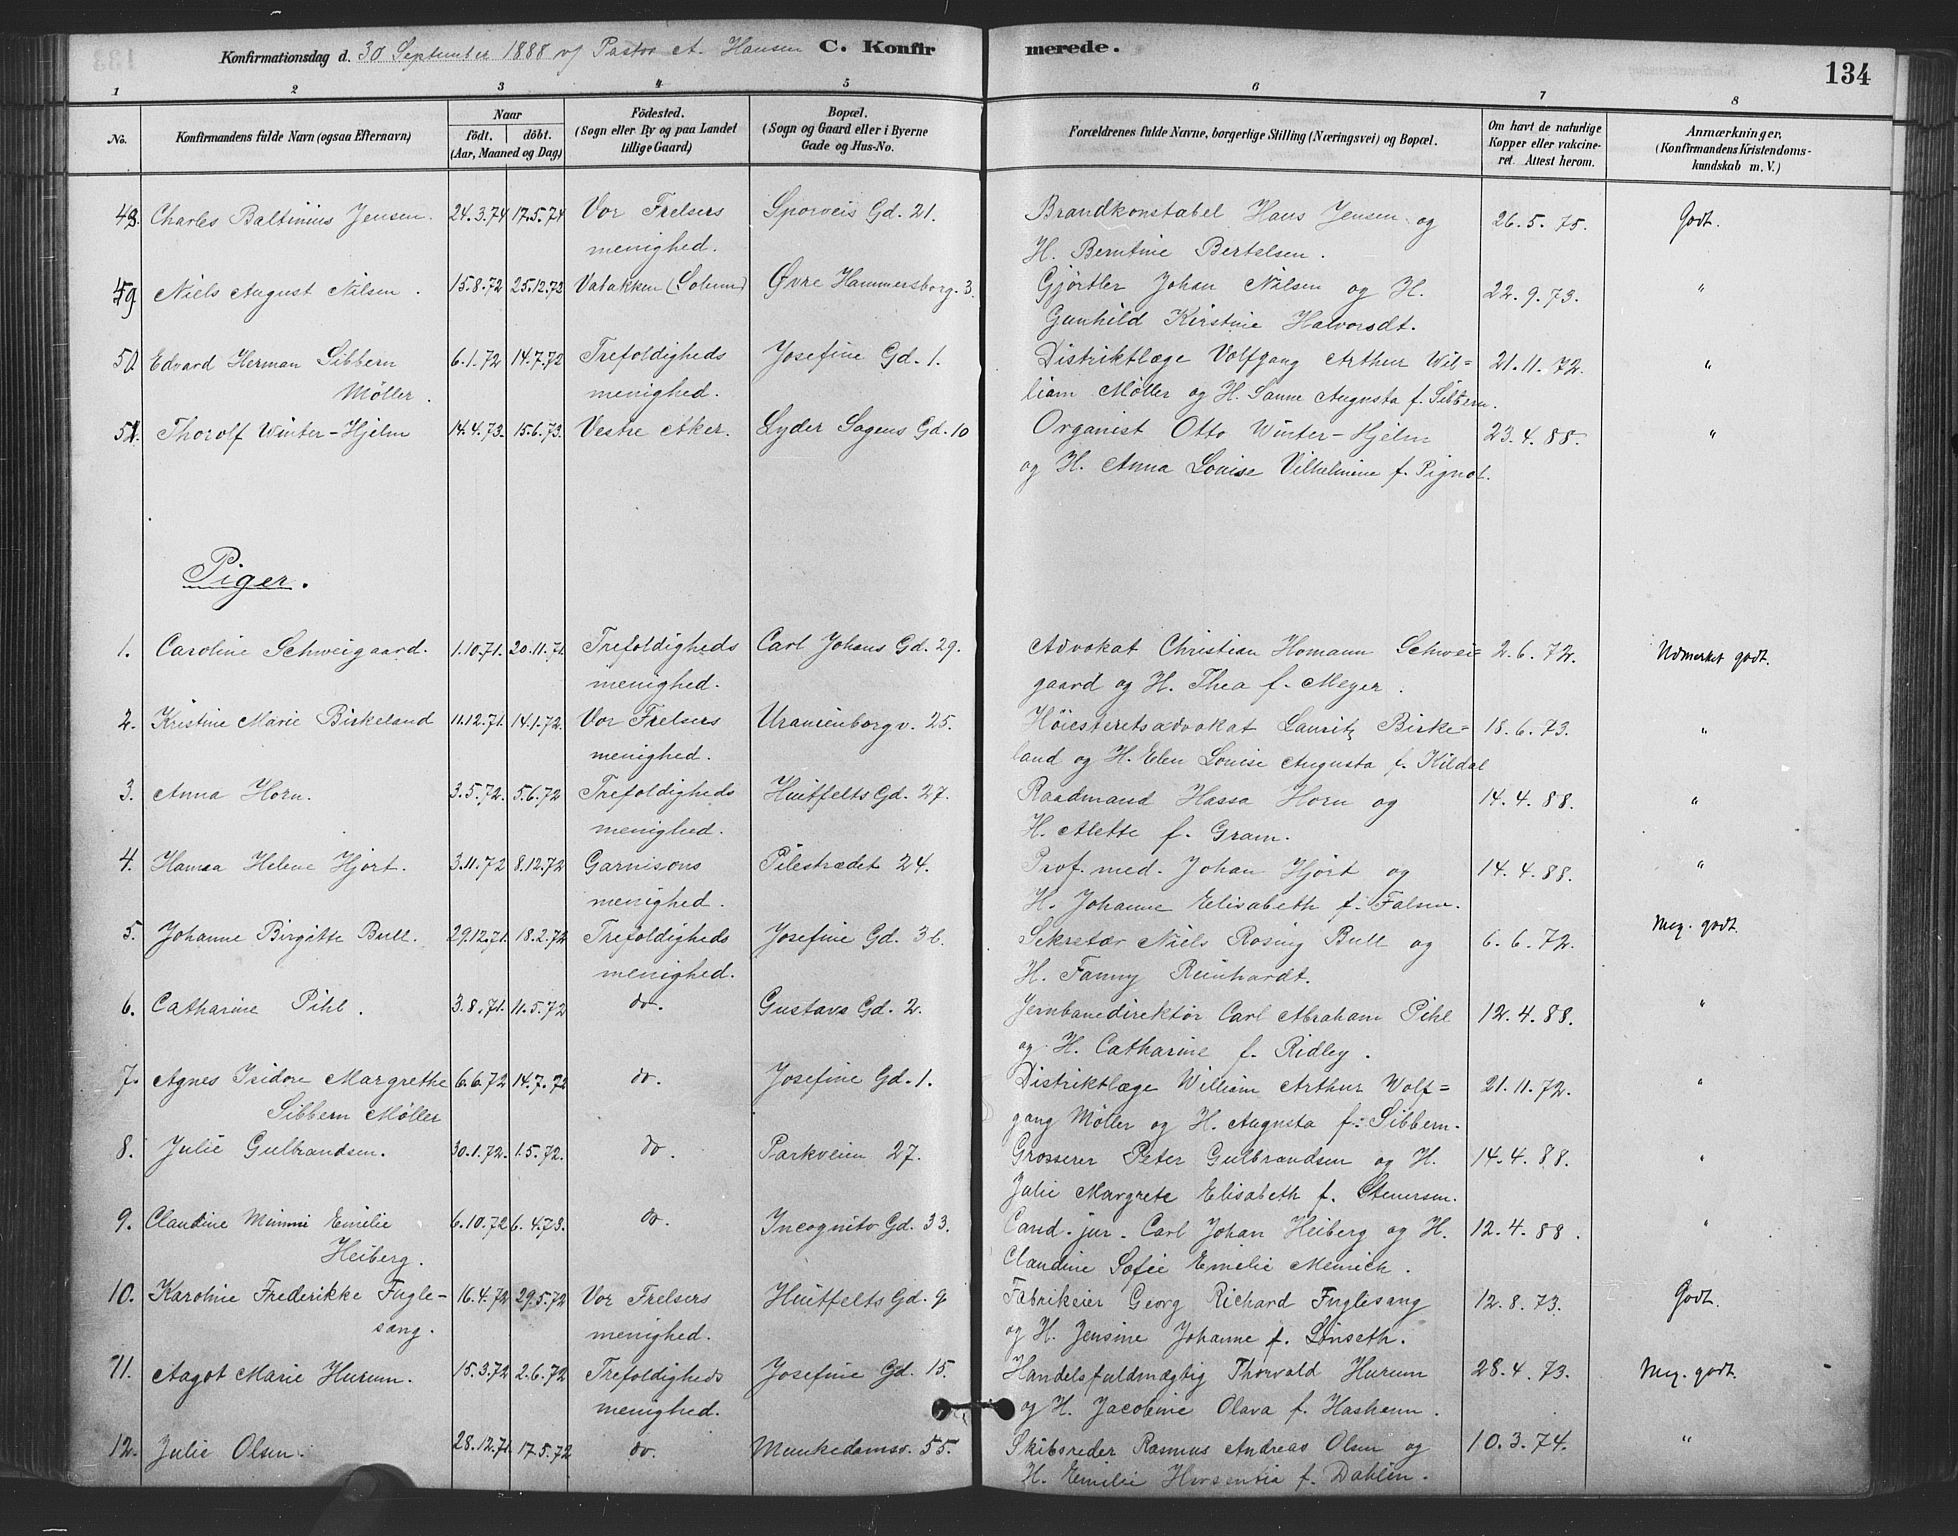 Konfirmationsdag d. 30 September 1888 v/ Pastor A. Hansen C. Konfirmerede. 134
1 2 3 4 5 6 7 8
No. Konfirmandens fulde Navn (ogsaa Efternavn) Naar födt. döbt. (Aar, Maaned og Dag) Födested. (Sogn eller By og paa Landet tillige Gaard) Bopæl. (Sogn og Gaard eller i Byerne Gade og Hus-No. Forældrenes fulde Navne, borgerlige Stilling (Næringsvei) og Bopæl. Om havt de naturlige Kopper eller vakcineret. Attest herom. Anmærkninger. (Konfirmandens Kristendomskundskab m. V.)
48. Charles Baltinius Jensen. 24.3.74 17.5.74 Vor Frelsers Sporveis Gd. 21. Brandkonstabel Hans Jensen og 26.5.75. Godt.
menighed. H. Berntine Bertelsen.
49 Niels August Nilsen. 15.8.72 25.12.72 Vatakken (Solum) Øvre Hammersborg. 3. Gjörtler Johan Nilsen og H. 22.9.73. "
Gunhild Kirstine Halvorsdt.
50 Edvard Herman Sibbern 6.1.72 14.7.72 Trefoldigheds Josefine Gd. 1. Distriktlæge Volfgang Arthur Wil= 21.11.72. "
Møller. menighed. liam Møller og H. Sanne Augusta f. Sibbern.
51. Thorolf Winter-Hjelm 14.4.73. 15.6.73. Vestre Aker. Lyder Sagens Gd. 10 Organist Otto Winter-Hjelm 23.4.88. "
og H. Anna Louise Vilhelmine f. Pignol.
Piger.
1. Caroline Schweigaard. 1.10.71. 20.11.71. Trefoldigheds Carl Johans Gd. 29. Advokat Christian Homann Schwei= 2.6.72. Udmerket godt.
menighed. gaard og H. Thea f. Meyer.
2. Kristine Marie Birkeland 11.12.71. 14.1.72. Vor Frelsers Uranienborgv. 25. Höiesteretsadvokat Lauritz Birke= 18.6.73. "
menighed. land og H. Elen Louise Augusta f. Kildal
3. Anna Horn. 3.5.72. 5.6.72 Trefoldigheds Huitfelts Gd. 27. Raadmand Hassa Horn og 14.4.88. "
menighed. H. Alette f. Gram.
4. Hansa Helene Hjort. 3.11.72 8.12.72 Garnisons Pilestrædet 24. Prof. med. Johan Hjort og 14.4.88. "
menighed. H. Johanne Elisabeth f. Falsen.
5. Johanne Birgitte Bull. 29.12.71. 18.2.72 Trefoldigheds Josefine Gd. 3b. Sekretær Niels Rosing Bull og 6.6.72. Meg. godt.
menighed. H. Fanny Reinhardt.
6. Catharine Pihl. 3.8.71. 11.5.72 do. Gustavs Gd. 2. Jernbanedirektör Carl Abraham Pihl 12.4.88. "
og H. Catharine f. Ridley.
7. Agnes Isidore Margrethe 6.6.72 14.7.72 do. Josefine Gd. 1. Distriktlæge William Arthur Wolf= 21.11.72. "
Sibbern Møller gang Møller og H. Augusta f. Sibbern.
8. Julie Gulbrandsen. 30.1.72. 1.5.72. do. Parkveien 27. Grosserer Peter Gulbrandsen og H. 14.4.88. "
Julie Margrete Elisabeth f. Stenersen.
9. Claudine Mimmi Emilie 6.10.72 6.4.73. do. Incognito Gd. 33. Cand. jur. Carl Johan Heiberg og H. 12.4.88. "
Heiberg. Claudine Sofie Emelie Meinich.
10. Karoline Frederikke Fugle- 16.4.72 29.5.72 Vor Frelsers Huitfelts Gd. 9 Fabrikeier Georg Richard Fuglesang 12.8.73. Godt.
sang. menighed. og H. Jensine Johanne f. Lönseth.
11. Aagot Marie Hurum. 15.3.72 2.6.72 Trefoldigheds Josefine Gd. 15. Handelsfuldmægtig Thorvald Hurum 28.4.73. Meg. godt.
menighed. og H. Jacobine Olava f.
12. Julie Olsen. 28.12.71. 17.5.72 do. Munkedamsv. 55. Skibsreder Rasmus Andreas Olsen og 10.3.74. "
H. Emilie f. Dahlin.